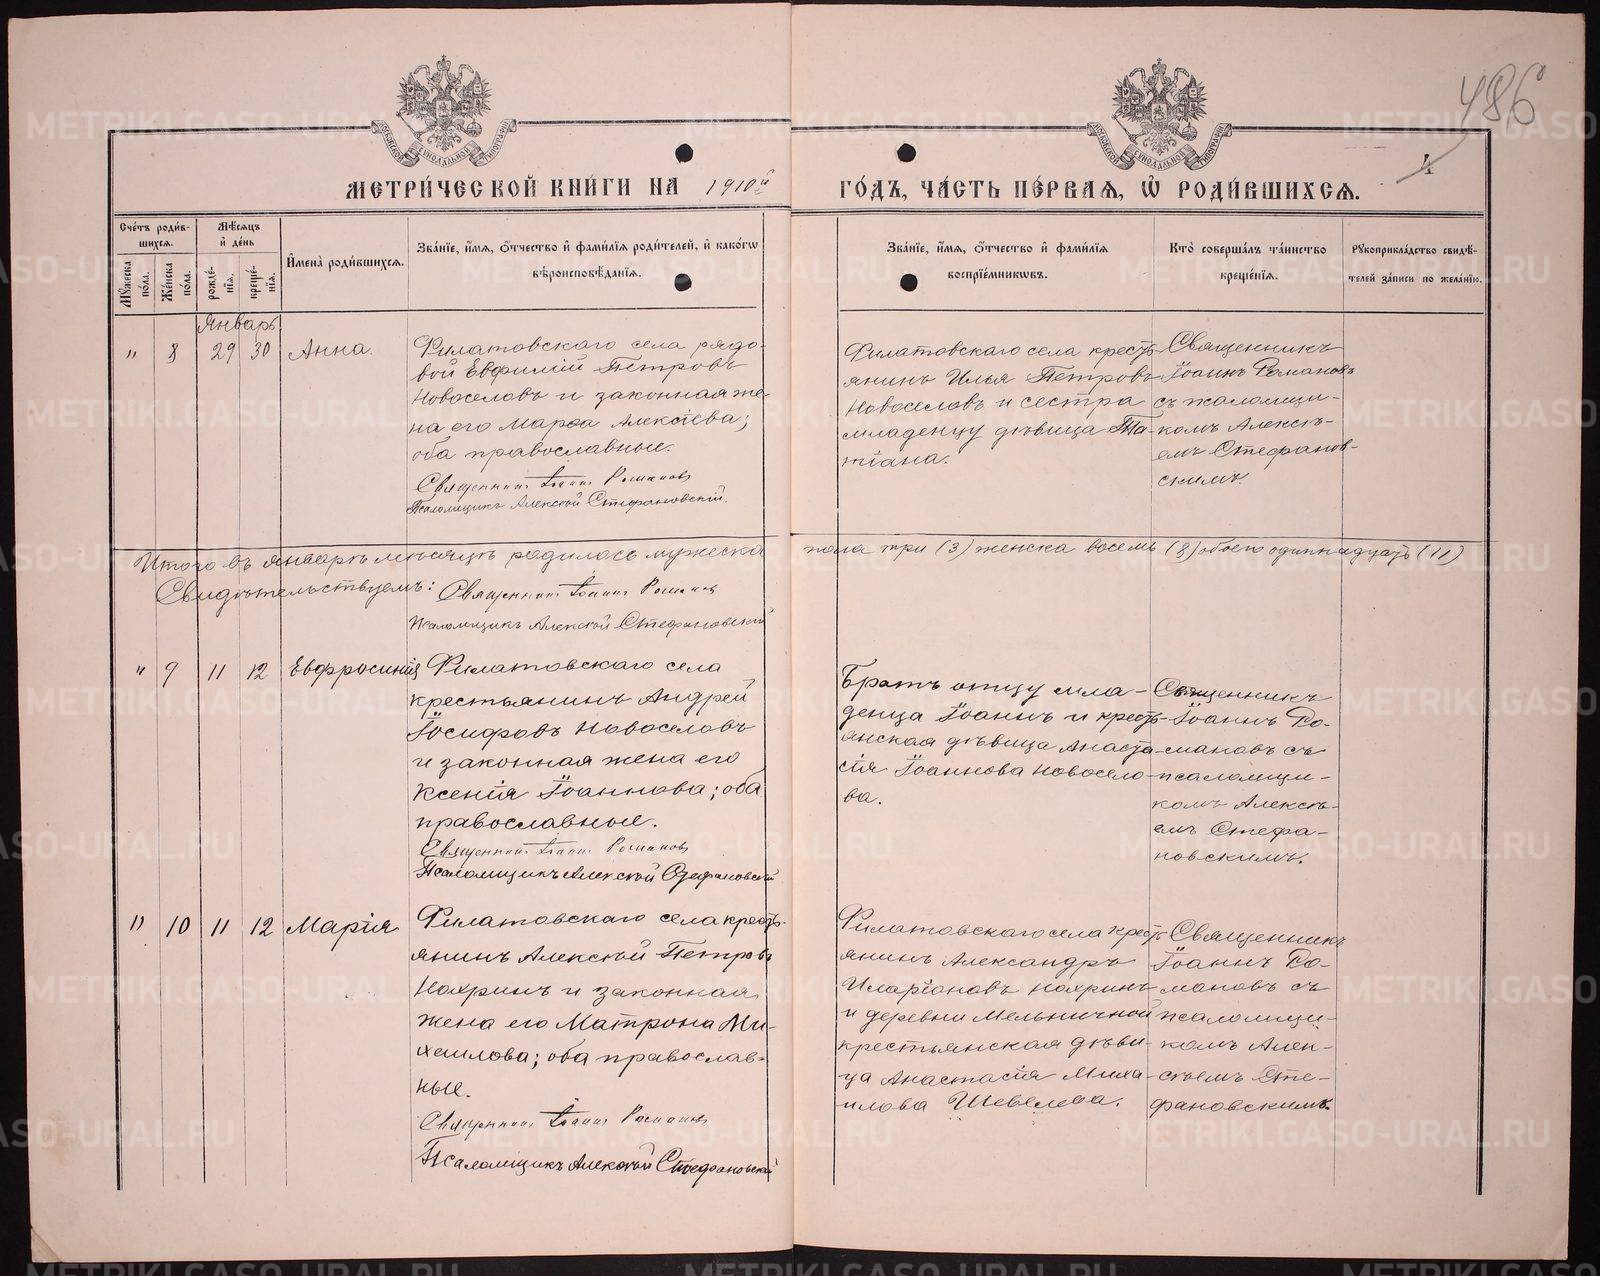 486
4
МОСКОВСКОЙ СѴНОДАЛЬНОЙ ТИПОГРАФІИ
МОСКОВСКОЙ СѴНОДАЛЬНОЙ ТИПОГРАФІИ
МЕТРИ́ЧЕСКОЙ КНИ́ГИ НА 1910й ГО́ДЪ, ЧА́СТЬ ПЕ́РВАЯ, Ѡ҆ РОДИ́ВШИХСѦ.
Сче́тъ роди́в-
шихсѧ.
Мꙋжеска по́ла.
Же́нска по́ла.
Мѣ́сѧцъ
и҆ де́нь
рожде́-
нїѧ.
креще́-
нїѧ.
И҆мена̀ роди́вшихсѧ.
Зва́нїе, и҆́мѧ, ѻ҆́тчество и҆ фами́лїѧ роди́телей, и҆ како́гѡ
вѣроисповѣ́данїѧ.
Зва́нїе, и҆́мѧ, ѻ҆́тчество и҆ фами́лїѧ
воспрїе́мникѡвъ.
Кто̀ соверша́лъ та́инство
креще́нїѧ.
Рꙋкоприкла́дство свидѣ́-
телей за́писи по жела́нїю.
Январь
" 8 29 30 Анна.
Филатовскаго села рядо-
вой Евфимій Петровъ
Новоселовъ и законная же-
на его Марѳа Алексѣева;
оба православные.
Священникъ Іоаннъ Романовъ
Псаломщикъ Алексѣй Стефановскій.
Филатовскаго села кресть-
янинъ Илья Петровъ
Новоселовъ и сестра
младенцу дѣвица Та-
тіана.
Священникъ
Іоаннъ Романовъ
съ псаломщи-
комъ Алексѣ-
емъ Стефанов-
скимъ.
Итого въ январѣ мѣсяцѣ родилось мужеска пола три (3) женска восемь (8) обоего одиннадцать (11)
Свидѣтельствуемъ: Священникъ Іоаннъ Романовъ
Псаломщикъ Алексѣй Стефановскій
" 9 11 12 Евфросинія
Филатовскаго села
крестьянинъ Андрей
Іосифовъ Новоселовъ
и законная жена его
Ксенія Іоаннова; оба
православные.
Священникъ Іоаннъ Романовъ
Псаломщикъ Алексѣй Стефановскій
Братъ отцу мла-
денца Іоаннъ и кресть-
янская дѣвица Анаста-
сія Іоаннова Новосело-
ва.
Священникъ
Іоаннъ Ро-
мановъ съ
псаломщи-
комъ Алексѣ-
емъ Стефа-
новскимъ.
" 10 11 12 Марія
Филатовскаго села кресть-
янинъ Алексѣй Петровъ
Нохринъ и законная
жена его Матрона Ми-
хаилова; оба православ-
ные.
Священникъ Іоаннъ Романовъ
Псаломщикъ Алексѣй Стефановскій
Филатовскаго села кресть-
янинъ Александръ
Иларіоновъ Нохринъ
и деревни Мельничной
крестьянская дѣви-
ца Анастасія Миха-
илова Шевелева.
Священникъ
Іоаннъ Ро-
мановъ съ
псаломщи-
комъ Алек-
сѣемъ Сте-
фановскимъ.
METRIKI.GASO-URAL.RU